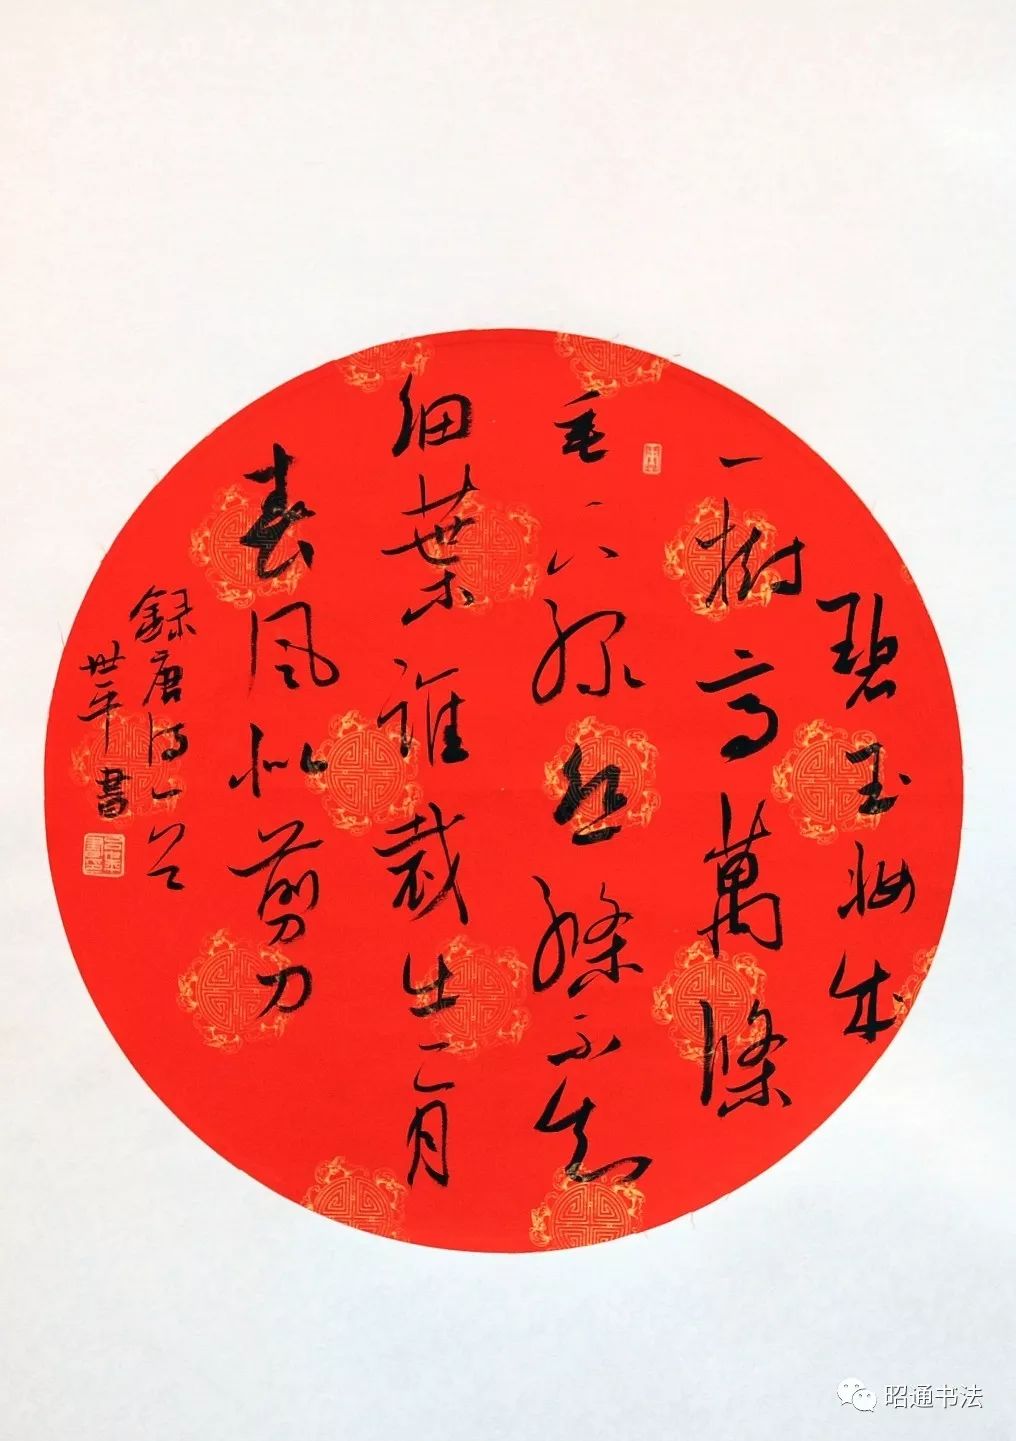 碧玉妝成
一樹高萬條
垂下綠丝絛不知
細葉誰裁出二月
春風似剪刀
録唐詩一首
世平書
昭通书法